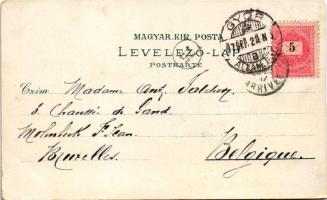 MAGYAR. KIR. POSTA.
LEVELEZŐ-LAP
POSTKARTE
GYŐR
5
ARRIVÉE
Czim: Madame Ant.
Chaussée de Gand.
Molenbeek St Jean.
Bruxelles.
Belgique.